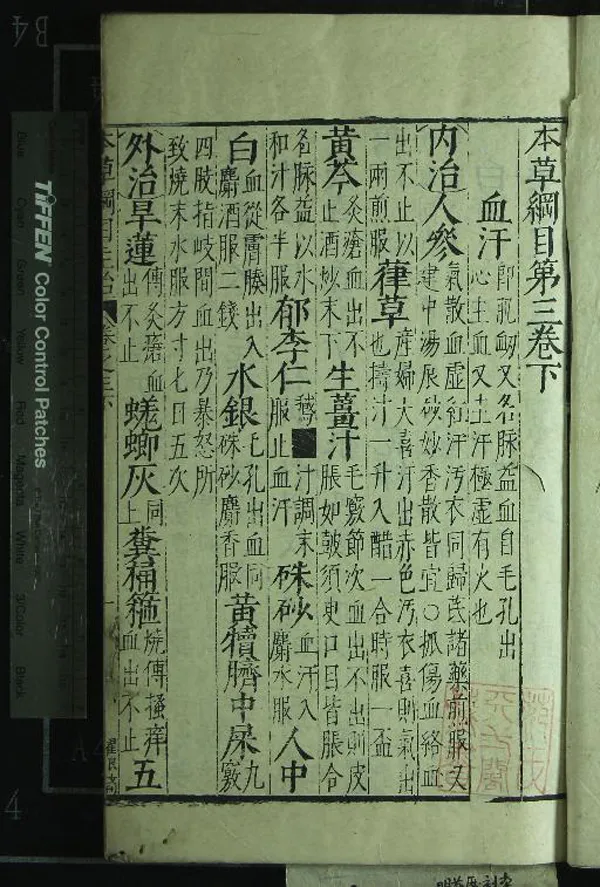 本草綱目第三卷下
血汗 即肌衂又名脉益血自毛孔出
心主血又主汗極虛有火也
內治人參 氣散血虛紅汗污衣同歸茋諸藥煎服又
建中湯辰砂妙香散皆宜○抓傷血絡血
出不止以
一兩煎服
葎草 產婦大喜汗出赤色汚衣喜則氣出
也擣汁一升入醋一合時服一盃
黃芩 灸瘡血出不
止酒炒末下
生薑汁 毛竅節次血出不出則皮
脹如皷須臾口目皆脹合
名脉益以水
和汁各半服
郁李仁 鵞 汁調末
服止血汗
硃砂 血汗入
麝水服
人中
白 血從膚腠出入
麝酒服二錢
水銀 毛孔出血同
硃砂麝香服
黃犢臍中屎 九
竅
四肢指岐間血出乃暴怒所
致燒末水服方寸匕日五次
外治旱蓮 傳灸瘡血
出不止
蜣蜋灰 同
上
糞桶箍 燒傳搔痒
血出不止
五
TIFFEN Color Control Patches
Blue Cyan Green Yellow Red Magenta White 3/Color Black
B4
A4
4